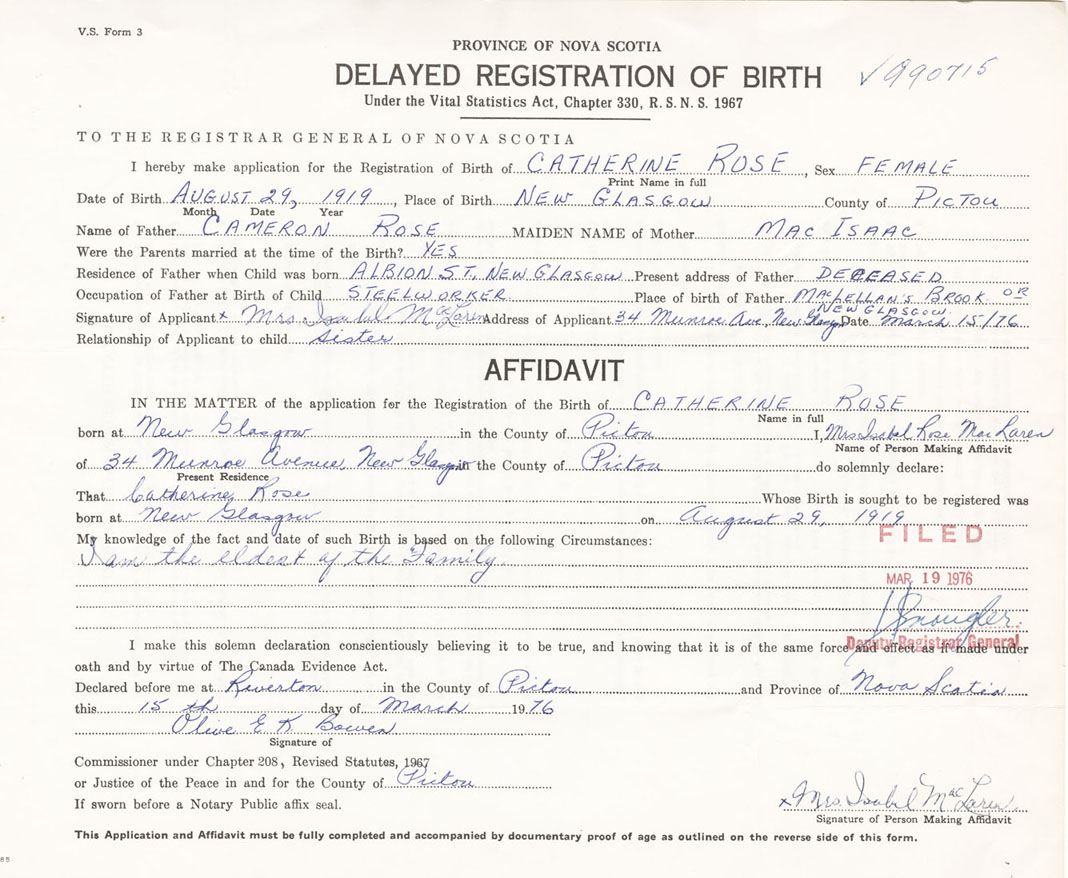 V.S. Form 3
PROVINCE OF NOVA SCOTIA
DELAYED REGISTRATION OF BIRTH
√990715
Under the Vital Statistics Act, Chapter 330, R.S.N.S. 1967
TO THE REGISTRAR GENERAL OF NOVA SCOTIA
I hereby make application for the Registration of Birth of CATHERINE ROSE, Sex FEMALE
Print Name in full
Date of Birth AUGUST 29, 1919, Place of Birth NEW GLASGOW County of PICTOU
Month Date Year
Name of Father CAMERON ROSE MAIDEN NAME of Mother MAC ISAAC
Were the Parents married at the time of the Birth? YES
Residence of Father when Child was born ALBION ST. NEW GLASGOW Present address of Father DECEASED
Occupation of Father at Birth of Child STEELWORKER Place of birth of Father MACLELLAN'S BROOK OR
NEW GLASGOW
Signature of Applicant x Mrs. Isabel MacLaren Address of Applicant 34 Munroe Ave, New Glasgow Date March 15/76
Relationship of Applicant to child sister
AFFIDAVIT
IN THE MATTER of the application for the Registration of the Birth of CATHERINE ROSE
Name in full
born at New Glasgow in the County of Pictou I, Mrs Isabel Rose MacLaren
Name of Person Making Affidavit
of 34 Munroe Avenue, New Glasgow in the County of Pictou do solemnly declare:
Present Residence
That Catherine Rose Whose Birth is sought to be registered was
born at New Glasgow on August 29, 1919
FILED
My knowledge of the fact and date of such Birth is based on the following Circumstances:
I am the eldest of the Family.
MAR 19 1976
Deputy Registrar General
I make this solemn declaration conscientiously believing it to be true, and knowing that it is of the same force and effect as if made under
oath and by virtue of The Canada Evidence Act.
Declared before me at Riverton in the County of Pictou and Province of Nova Scotia
this 15 th day of March 1976
Olive E K Bowen
Signature of
Commissioner under Chapter 208, Revised Statutes, 1967
or Justice of the Peace in and for the County of Pictou
If sworn before a Notary Public affix seal.
x Mrs. Isabel MacLaren
Signature of Person Making Affidavit
This Application and Affidavit must be fully completed and accompanied by documentary proof of age as outlined on the reverse side of this form.
85